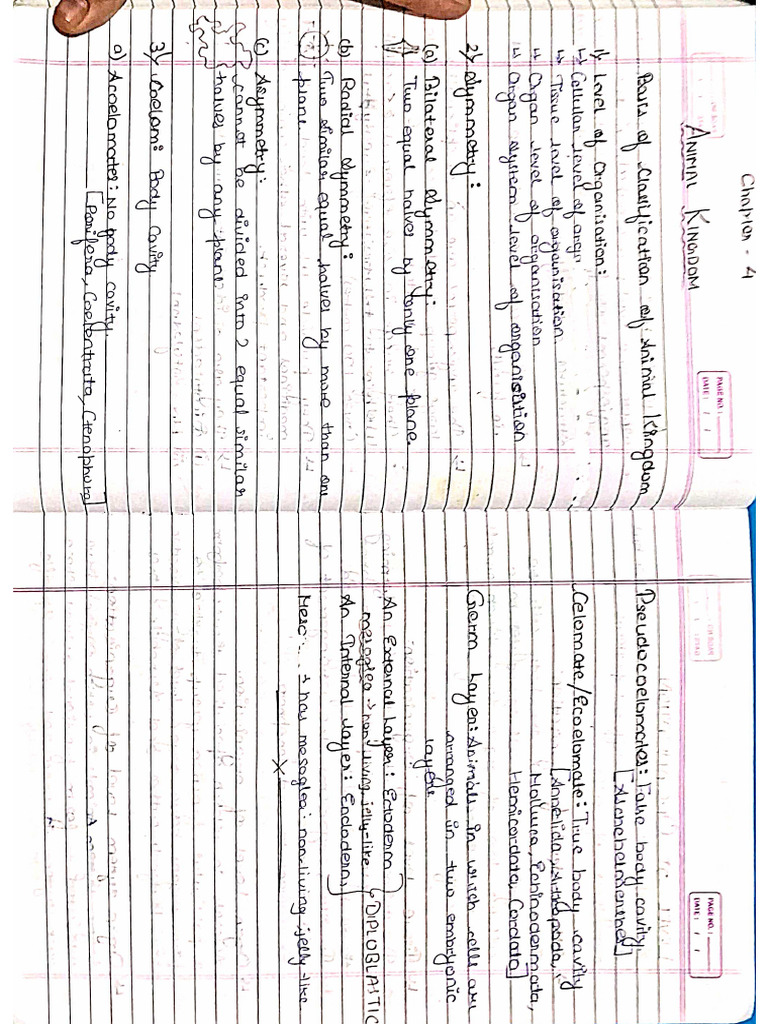 Chapter - 4
ANIMAL KINGDOM
PAGE NO.:
DATE: / /
Basis of Classification of Animal Kingdom
1) Level of Organisation:
↳ Cellular level of orgn
↳ Tissue level of organisation
↳ Organ level of organisation
↳ Organ system level of organisation
2) Symmetry:
(a) Bilateral Symmetry:
Two equal halves by only one plane.
(b) Radial Symmetry:
Two similar equal halves by more than one
plane
(c) Asymmetry:
cannot be divided into 2 equal similar
halves by any plane
3) Coelom: Body Cavity
a) Acoelomates: No body cavity.
[Porifera, Coelentrata, Ctenophora]
PAGE NO.:
DATE: / /
Pseudocoelomates: False body cavity,
[Aschelminthes]
Celomate/Ecoelomate: True body cavity
[Annelida, Arthropoda,
Mollusca, Echinodermata,
Hemicordata, Cordata]
Germ Layer: Animals in which cells are
arranged in two embryonic
layers
An External Layer: Ectoderm
mesoglea → non living, jelly-like
↳ DIPLOBLASTIC
An Internal Layer: Endoderm
→ has mesoglea: non-living jelly-like